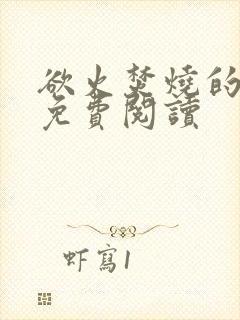 欲火焚燒的
免費閱讀
虾寫1